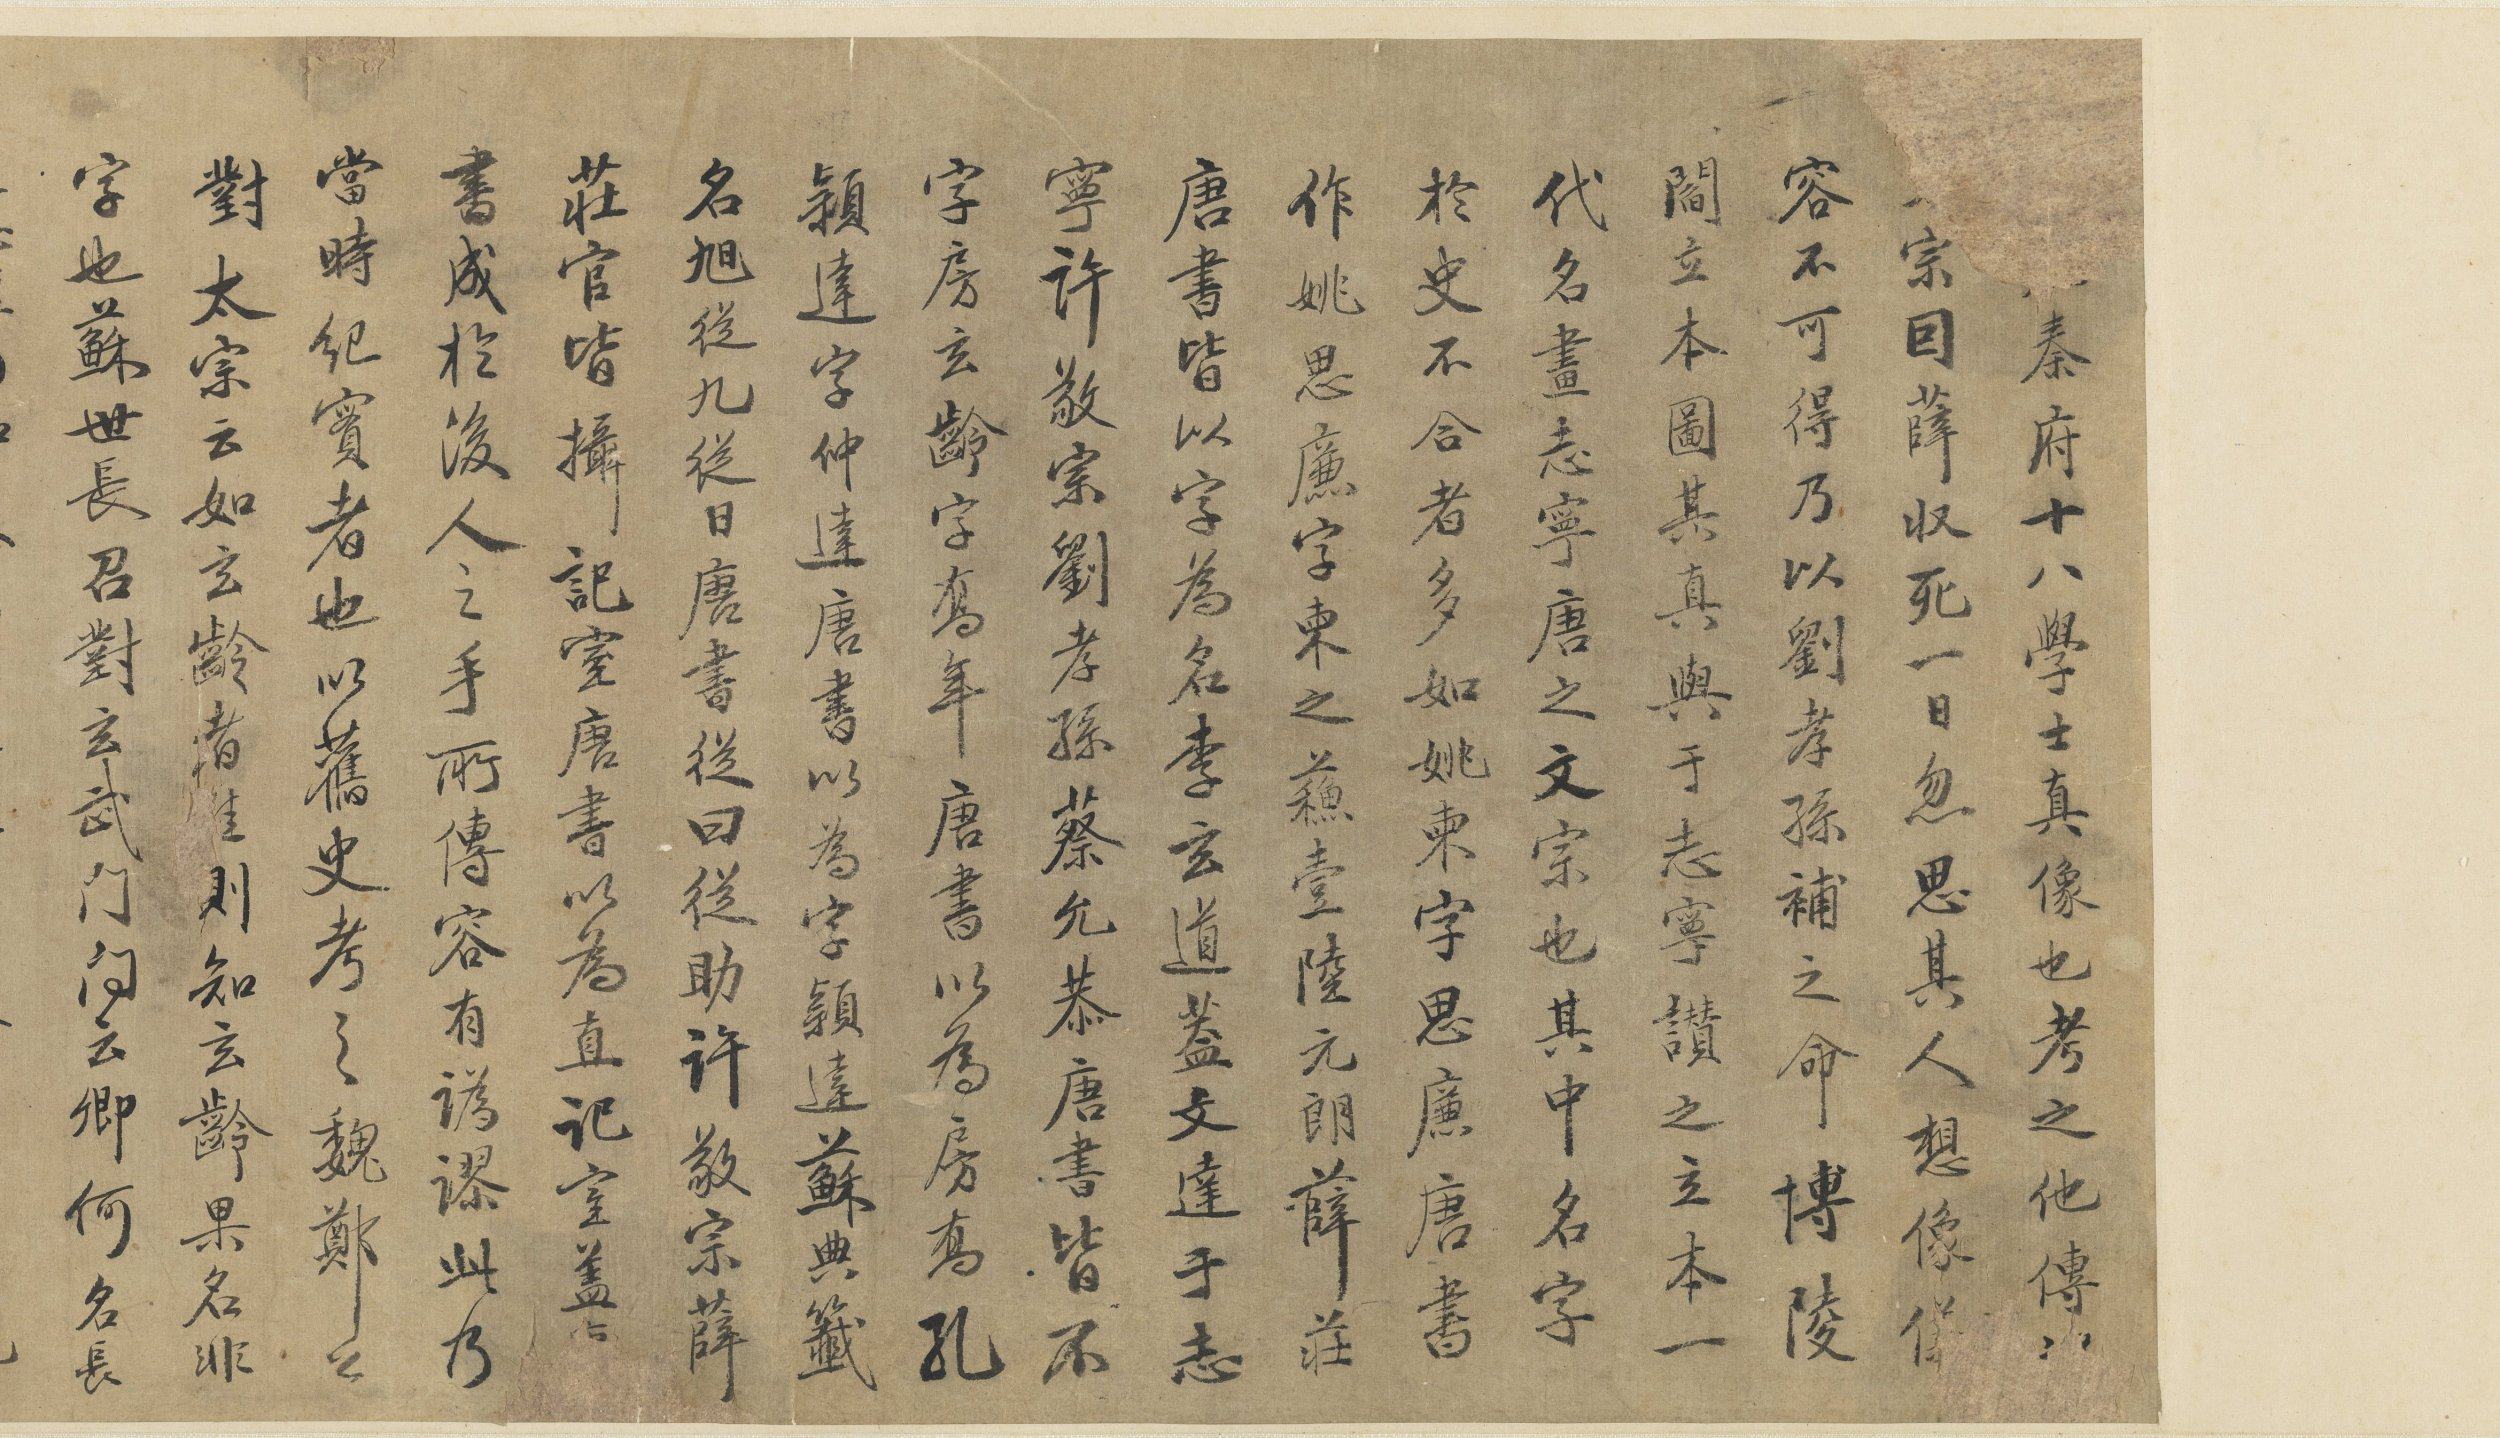 秦府十八學士真像也考之他傳
宗因薛收死一日忽思其人想像
容不可得乃以劉孝孫補之命博陵
閻立本圖其真與于志寧讃之立本一
代名畫志寧唐之文宗也其中名字
於史不合者多如姚柬字思廉唐書
作姚思廉字柬之蘓壹陸元朗薛莊
唐書皆以字為名李玄道蓋文達于志
寧許敬宗劉孝孫蔡允恭唐書皆不
字房玄齡字喬年唐書以為房喬孔
頴達字仲達唐書以為字頴達蘇典籤
名旭從九從日唐書從曰從助許敬宗薛
莊官皆攝記室唐書以為直記室蓋
書成於後人之手所傳容有譌謬此乃
當時紀實者也以舊史考之魏鄭公
對太宗云如玄齡者 則知玄齡果名非
字也蘇世長召對玄武門問云卿何名長